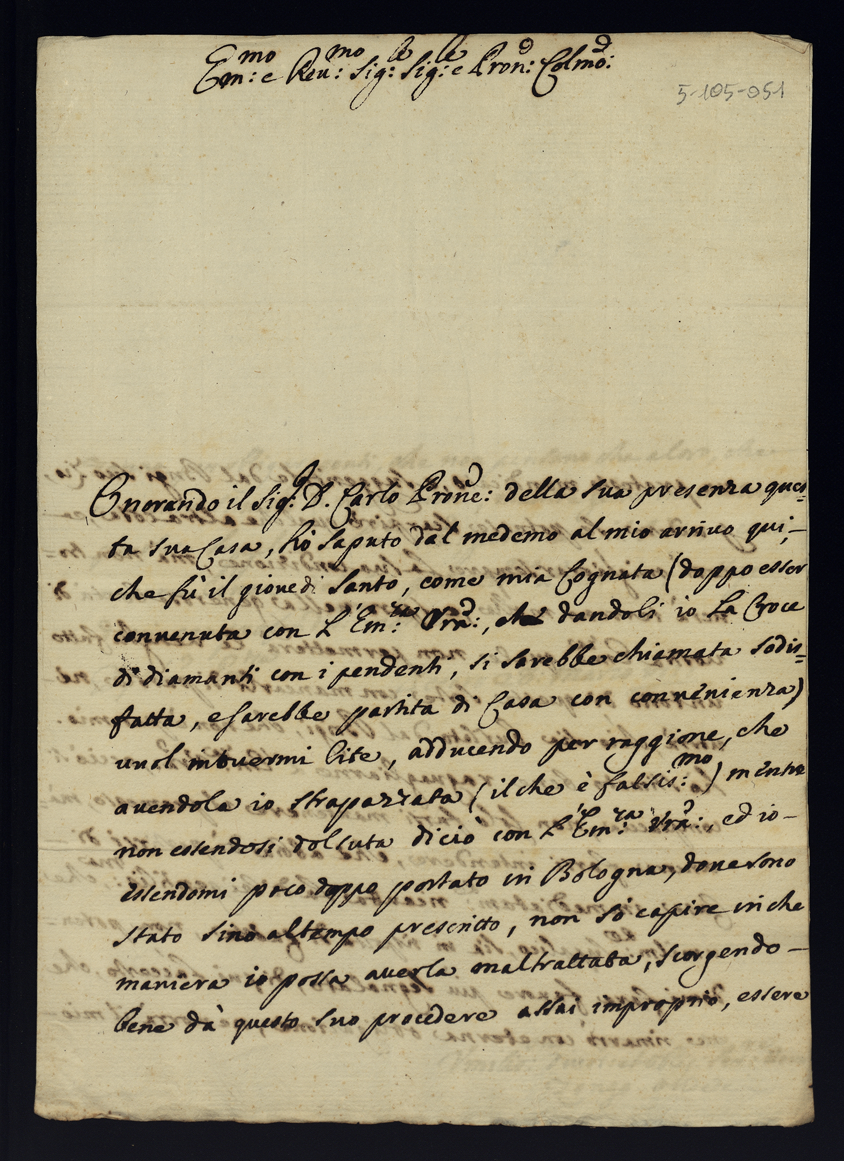 Em:mo e Reu:mo Sig:le Sig:le e Pron:e Colmo:
5-105-051
Onorando il Sig:r D. Carlo Prone: della sua presenza ques=
ta sua Casa, hò saputo dal medemo al mio arriuo qui,-
che fù il giouedi Santo, come mia Cognata (doppo esser
conuenuta con L'Em:za Vra:, che dandoli io La Croce
di diamanti con i pendenti, si sarebbe chiamata sodis=
fatta, e sarebbe partita di Casa con conuenienza)
uuol intuermi lite, adducendo per raggione, che
auendola io strapazzata (il che è falsis:mo) mentre
non essendosi dolsuta di ciò con L'Em:za Vra:, ed io-
essendomi poco doppo portato in Bologna, doue sono
stato sino al tempo prescritto, non sò capire in che
maniera io possa auerla maltrattata, scorgendo-
bene dà questo suo procedere assai improprio, essere